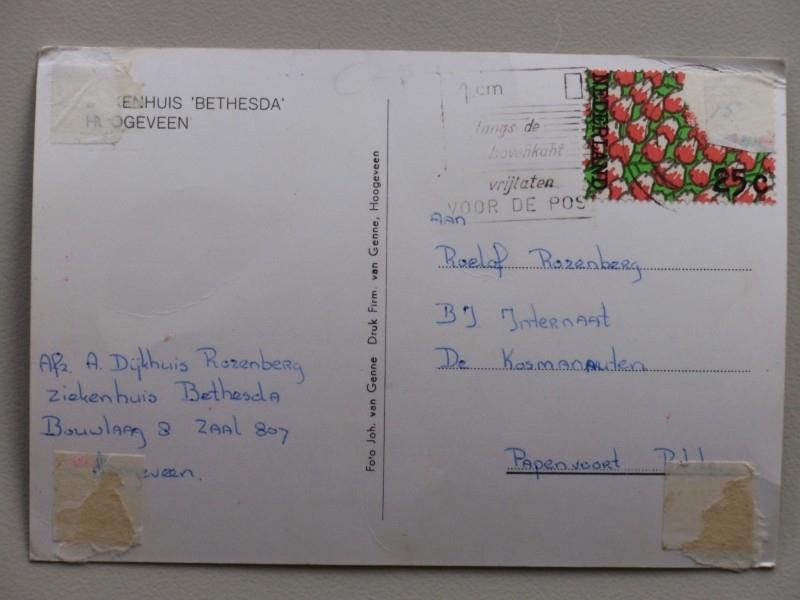 KENHUIS 'BETHESDA'
HOOGEVEEN
1 cm
langs de
bovenkant
vrijlaten
VOOR DE POS
NEDERLAND
25 c
AAN
Roelof Rozenberg
BJ. Internaat
De Kosmanauten
Papenvoort
Afz. A. Dijkhuis Rozenberg
Ziekenhuis Bethesda
Bouwlaag 8 Zaal 807
eveen.
Foto Joh. van Genne Druk Firm. van Genne, Hoogeveen